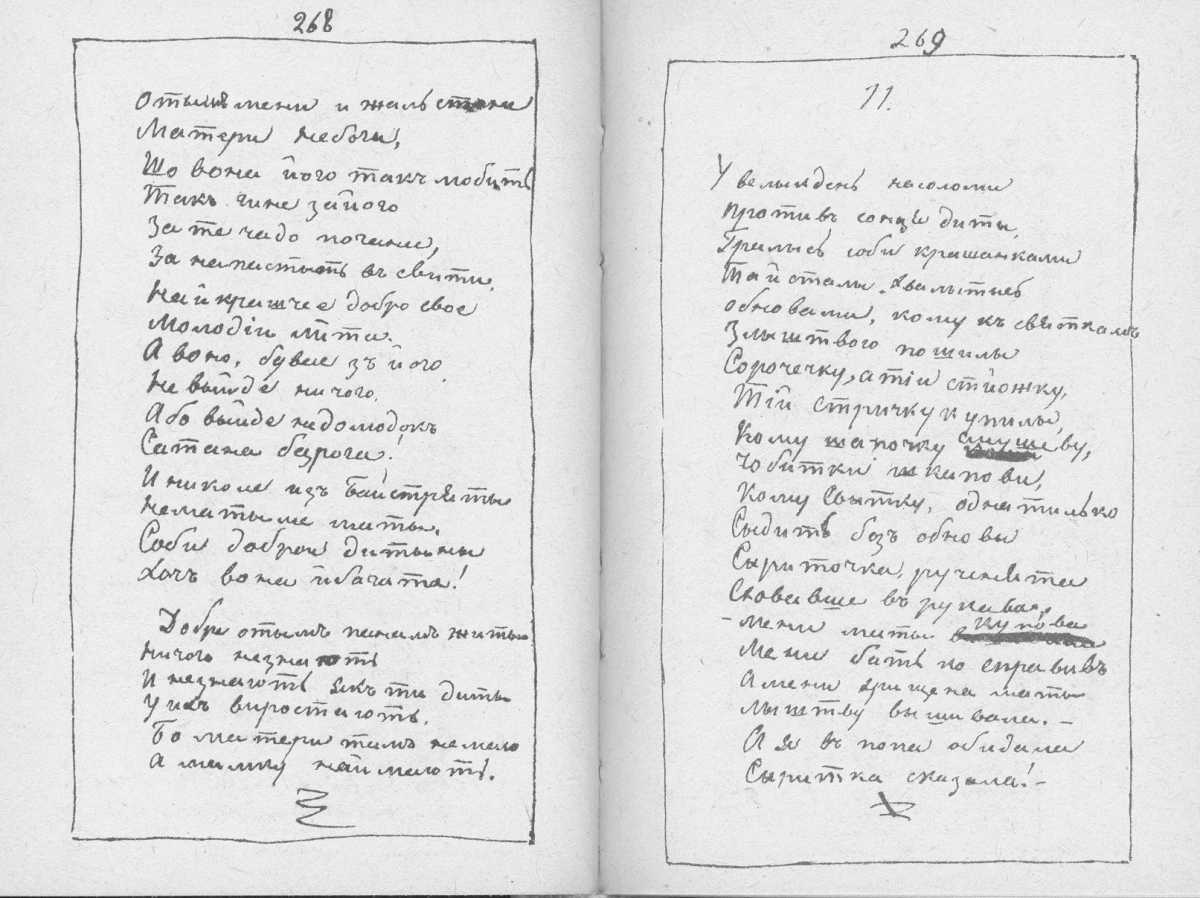 268
Отый мени и жаль стане
Матери небоги,
Що вона його такъ любыть
Такъ гине за його
За те чадо погане,
За напасть въ свити.
Найкрашче добро свое
Молодіи лита.
А воно, бувае зъ його
Не выйде ничого.
Або выйде недолюдокъ
Сатана безрога!
И николе изъ байстряты
Нематыме маты.
Соби доброи дытыны
Хочъ вона й багата!
Добре отымъ панамъ жыты
Ничого незнають
И незнають якъ ти диты
У ихъ виростають.
Бо матери тамъ немаю
А мамку наймають.
269
11.
У велыкдень насоломи
Противъ сонця диты,
Грались соби крашанками
Та й сталы хвалытись
Обновами, кому къ святкамъ
Злыштвого пошилы
Сорочечку, а тій стіожку,
Тій стричку купилы,
Кому шапочку смушеву,
Чобитки шкапови,
Кому Свытку, одна тилько
Сыдить безъ обновы
Сыриточка, рученята
Сховавше въ рукава.
- мени маты купова
Мени бать по справивъ
А мени хрищена маты
Лыштву вышивала. -
А я въ попа обидала
Сыритка сказала! -